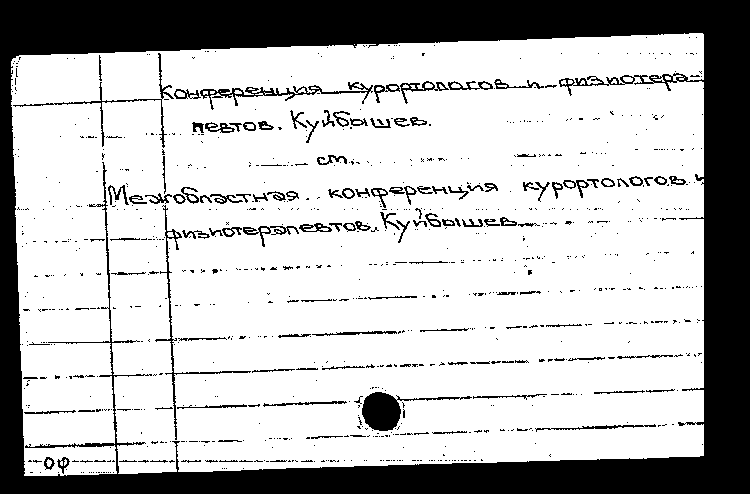 Конференция курортологов и физиотера-
певтов. Куйбышев.
см.
Межобластная конференция курортологов и
физиотерапевтов. Куйбышев.
оф